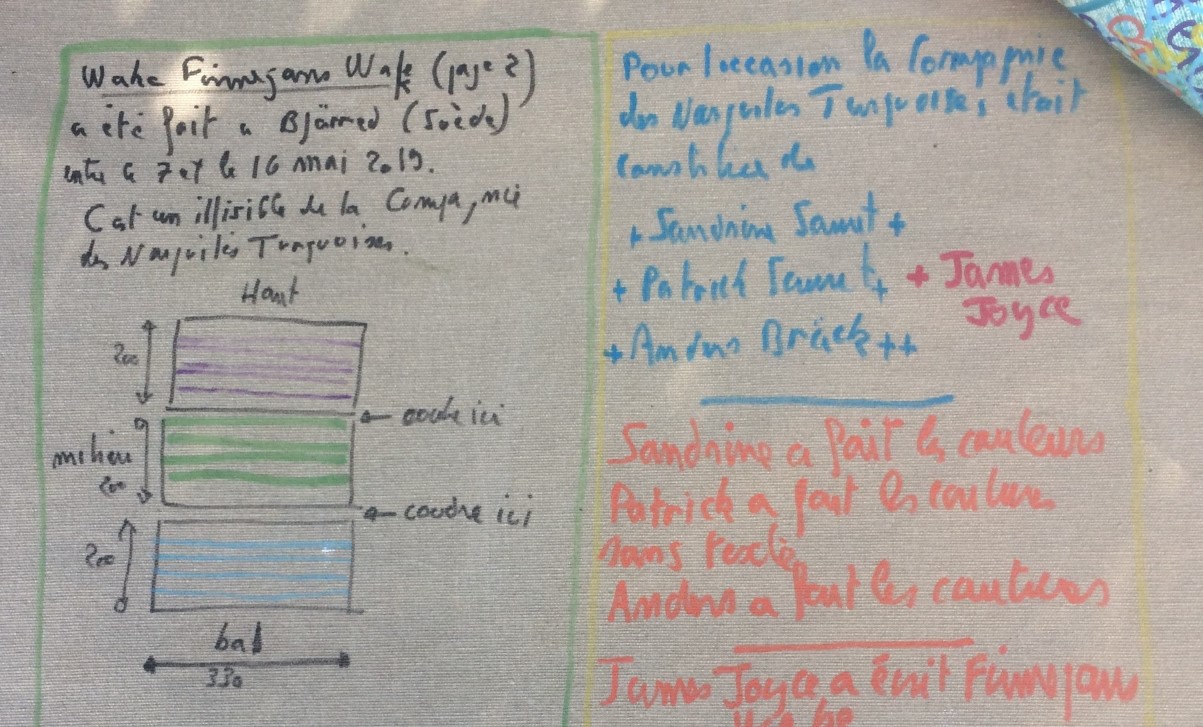 Wake Finnegans Wake (page 2)
a été fait a Bjärred (Suède)
entre le 7 et le 16 mai 2019.
C'est un illisible de la Compagnie
des Narguilés Turquoises.
Haut
200
← coudre ici
milieu
200
← coudre ici
200
bas
330
Pour l'occasion la Compagnie
des Narguiles Turquoises, était
constituée de
+ Sandrine +
+ Patrick + + James
Joyce
+ Anders Bräck ++
Sandrine a fait les couleurs
Patrick a fait les
sans
Anders a fait les coutures
James Joyce a écrit Finnegans
Wake